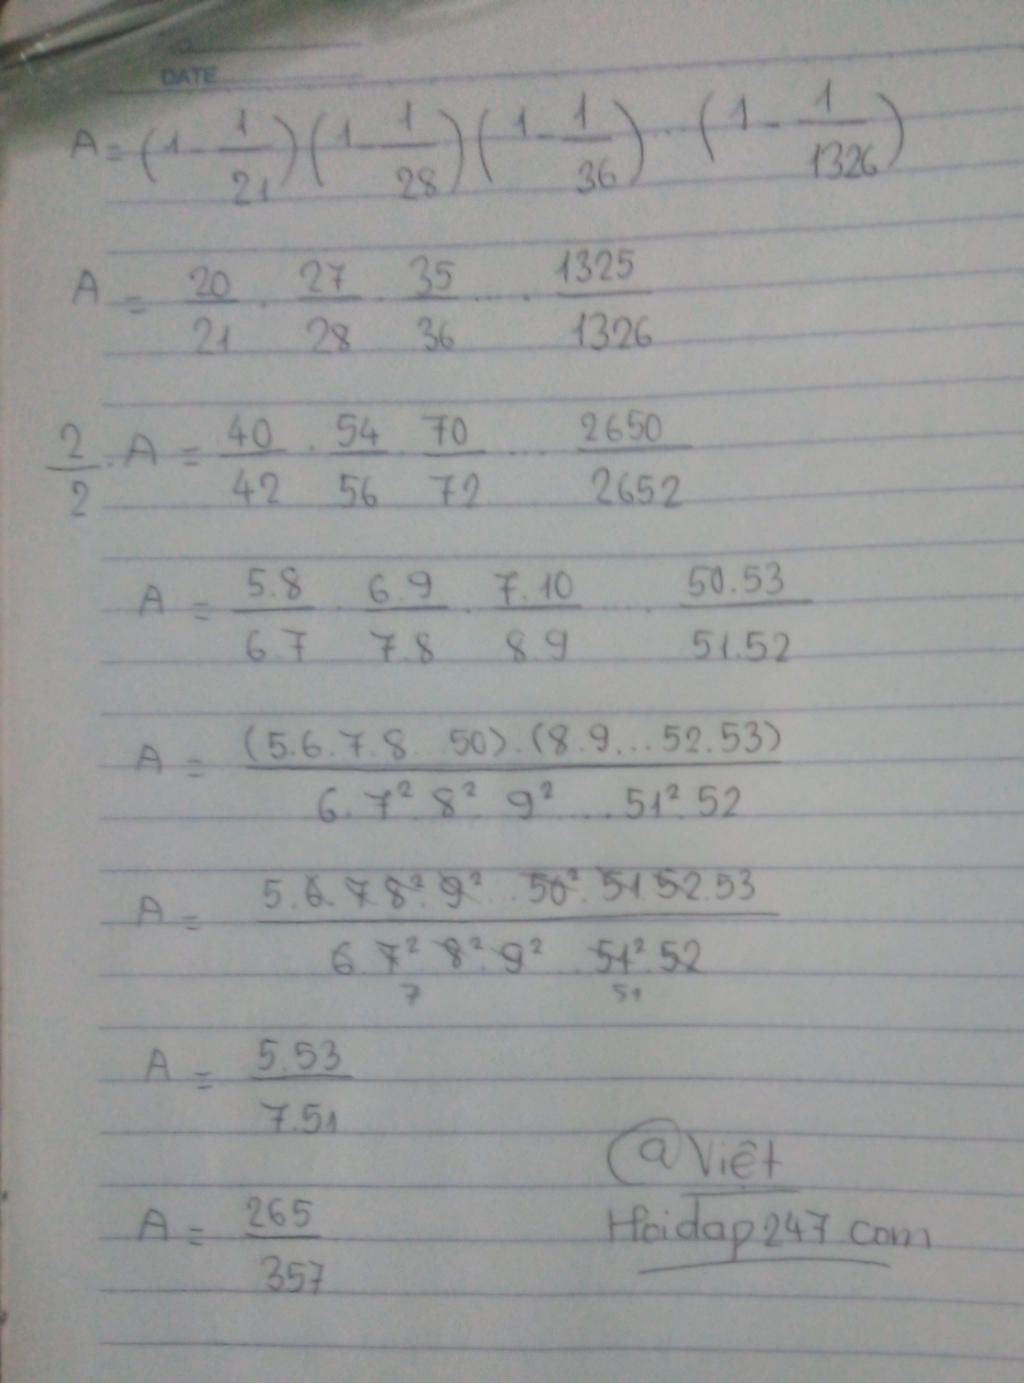 DATE
A = (1 - 1/21)(1 - 1/28)(1 - 1/36)...(1 - 1/1326)
A = 20/21 . 27/28 . 35/36 .... 1325/1326
2/2 . A = 40/42 . 54/56 . 70/72 ... 2650/2652
A = 5.8/6.7 . 6.9/7.8 . 7.10/8.9 .... 50.53/51.52
A = (5.6.7.8...50).(8.9...52.53)/6.7².8².9²...51².52
A = 5.6.7.8².9²...50².51.52.53/6.7².8².9²...51².52
7 51
A = 5.53/7.51
A = 265/357
@Việt
Hoidap247 com